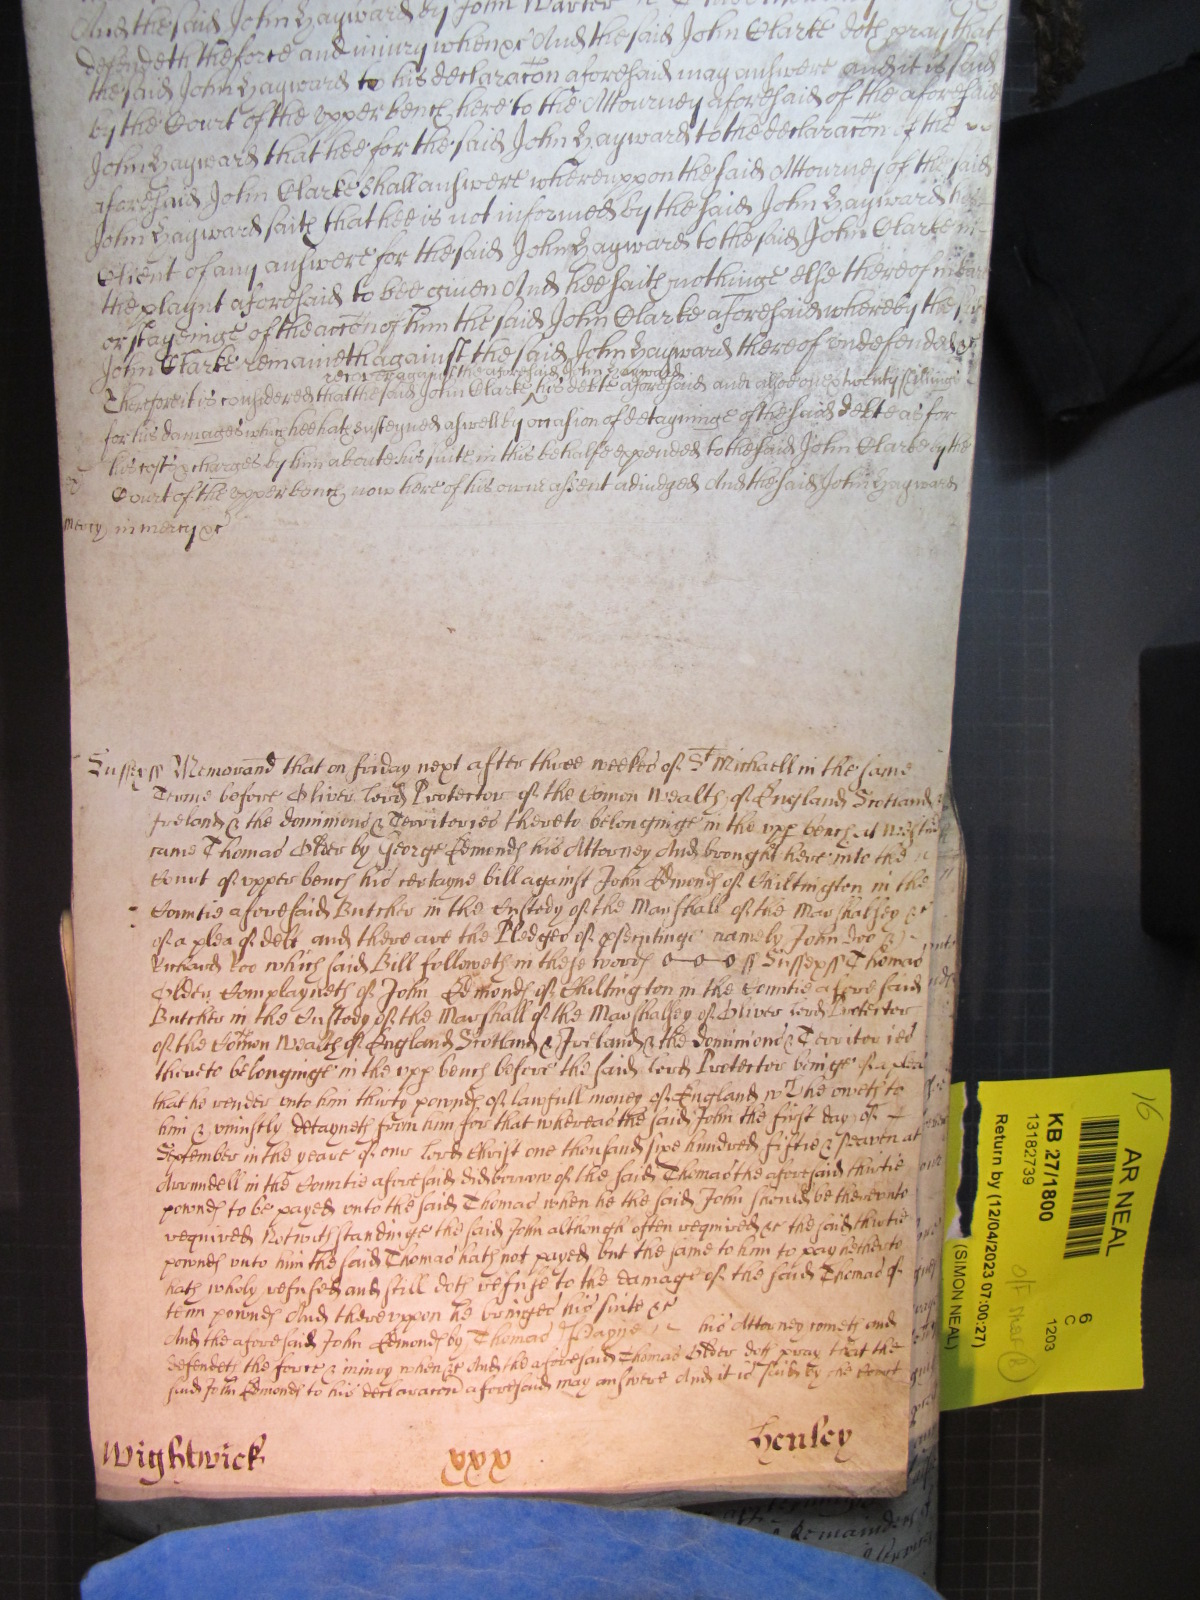 And the said John Hayward by John Warter
defendeth the force and iniury when &c And the said John Clarke doth pray that
the said John Hayward to his declaracon aforesaid may answere and it is said
by the Court of the vpper bench here to the Attourney aforesaid of the aforesaid
John Hayward that hee for the said John Hayward to the declaracon of the
aforesaid John Clarke shall answere wherevppon the said Attourney of the said
John Hayward saith that hee is not informed by the said John Hayward his
Client of any answere for the said John Hayward to the said John Clarke in
the playnt aforesaid to bee given And hee saith nothinge else thereof in barr
or stayeinge of the accon of him the said John Clarke aforesaid whereby the said
John Clarke remaineth against the said John Hayward thereof vndefended &c
recover against the aforesaid John Hayward
Therefore it is considered that the said John Clarke his debte aforesaid and alsoe twenty shillings
for his damages which hee hath susteyned aswell by occasion of detayninge of the said debte as for
his costs & charges by him about his suite in this behalfe expended to the said John Clarke by the
Court of the vpper bench now here of his owne assent adiudged And the said John Hayward
Mercy in mercy &c
Sussex ss Memorand that on friday next after three weekes of St Michaell in the same
Terme before Oliver lord Protector of the Comon Wealth of England Scotland &
Ireland & the dominions & Territories thereto belonginge in the vpp bench at Westm
came Thomas Older by George Edmonds his Attorney And brought here into the
Court of vpper bench his certayne bill against John Edmonds of Chiltington in the
Countie aforesaid Butcher in the Custody of the Marshall of the Marshalsey &c
of a plea of debt and there are the Pledges of psecutinge namely John Doo &
Richard Roo which said Bill followeth in these words ss Sussex ss Thomas
Older Complayneth of John Edmonds of Chiltington in the Countie aforesaid
Butcher in the Custody of the Marshall of the Marshalsey of Oliver Lord Protector
of the Comon Wealth of England Scotland & Ireland & the dominions & Territories
thereto belonginge in the vpp bench before the said lord Protector beinge of a plea
that he render vnto him thirty pownds of lawfull money of England wch he oweth to
him & vniustly detayneth from him for that whereas the said John the first day of
September in the yeare of our lord Christ one thousand sixe hundred fiftie & seaven at
Arundell in the Countie aforesaid did borrow of the said Thomas the aforesaid thirtie
pownds to be payed vnto the said Thomas when he the said John should be therevnto
required Notwithstandinge the said John although often required &c the said thirtie
pownds vnto him the said Thomas hath not payed but the same to him to pay hetherto
hath wholy refused and still doth refuse to the damage of the said Thomas of
tenn pownds And therevppon he bringes his suite &c
And the aforesaid John Edmonds by Thomas his Attorney cometh and
defendeth the force & iniury when &c And the aforesaid Thomas Older doth pray that the
said John Edmonds to his declaracon aforesaid may answere And it is said by the Court
Wightwick xxx Henley
16
AR NEAL
KB 27/1800
13182739
Return by (12/04/2023 07:00:27)
(SIMON NEAL)
6
C
1203